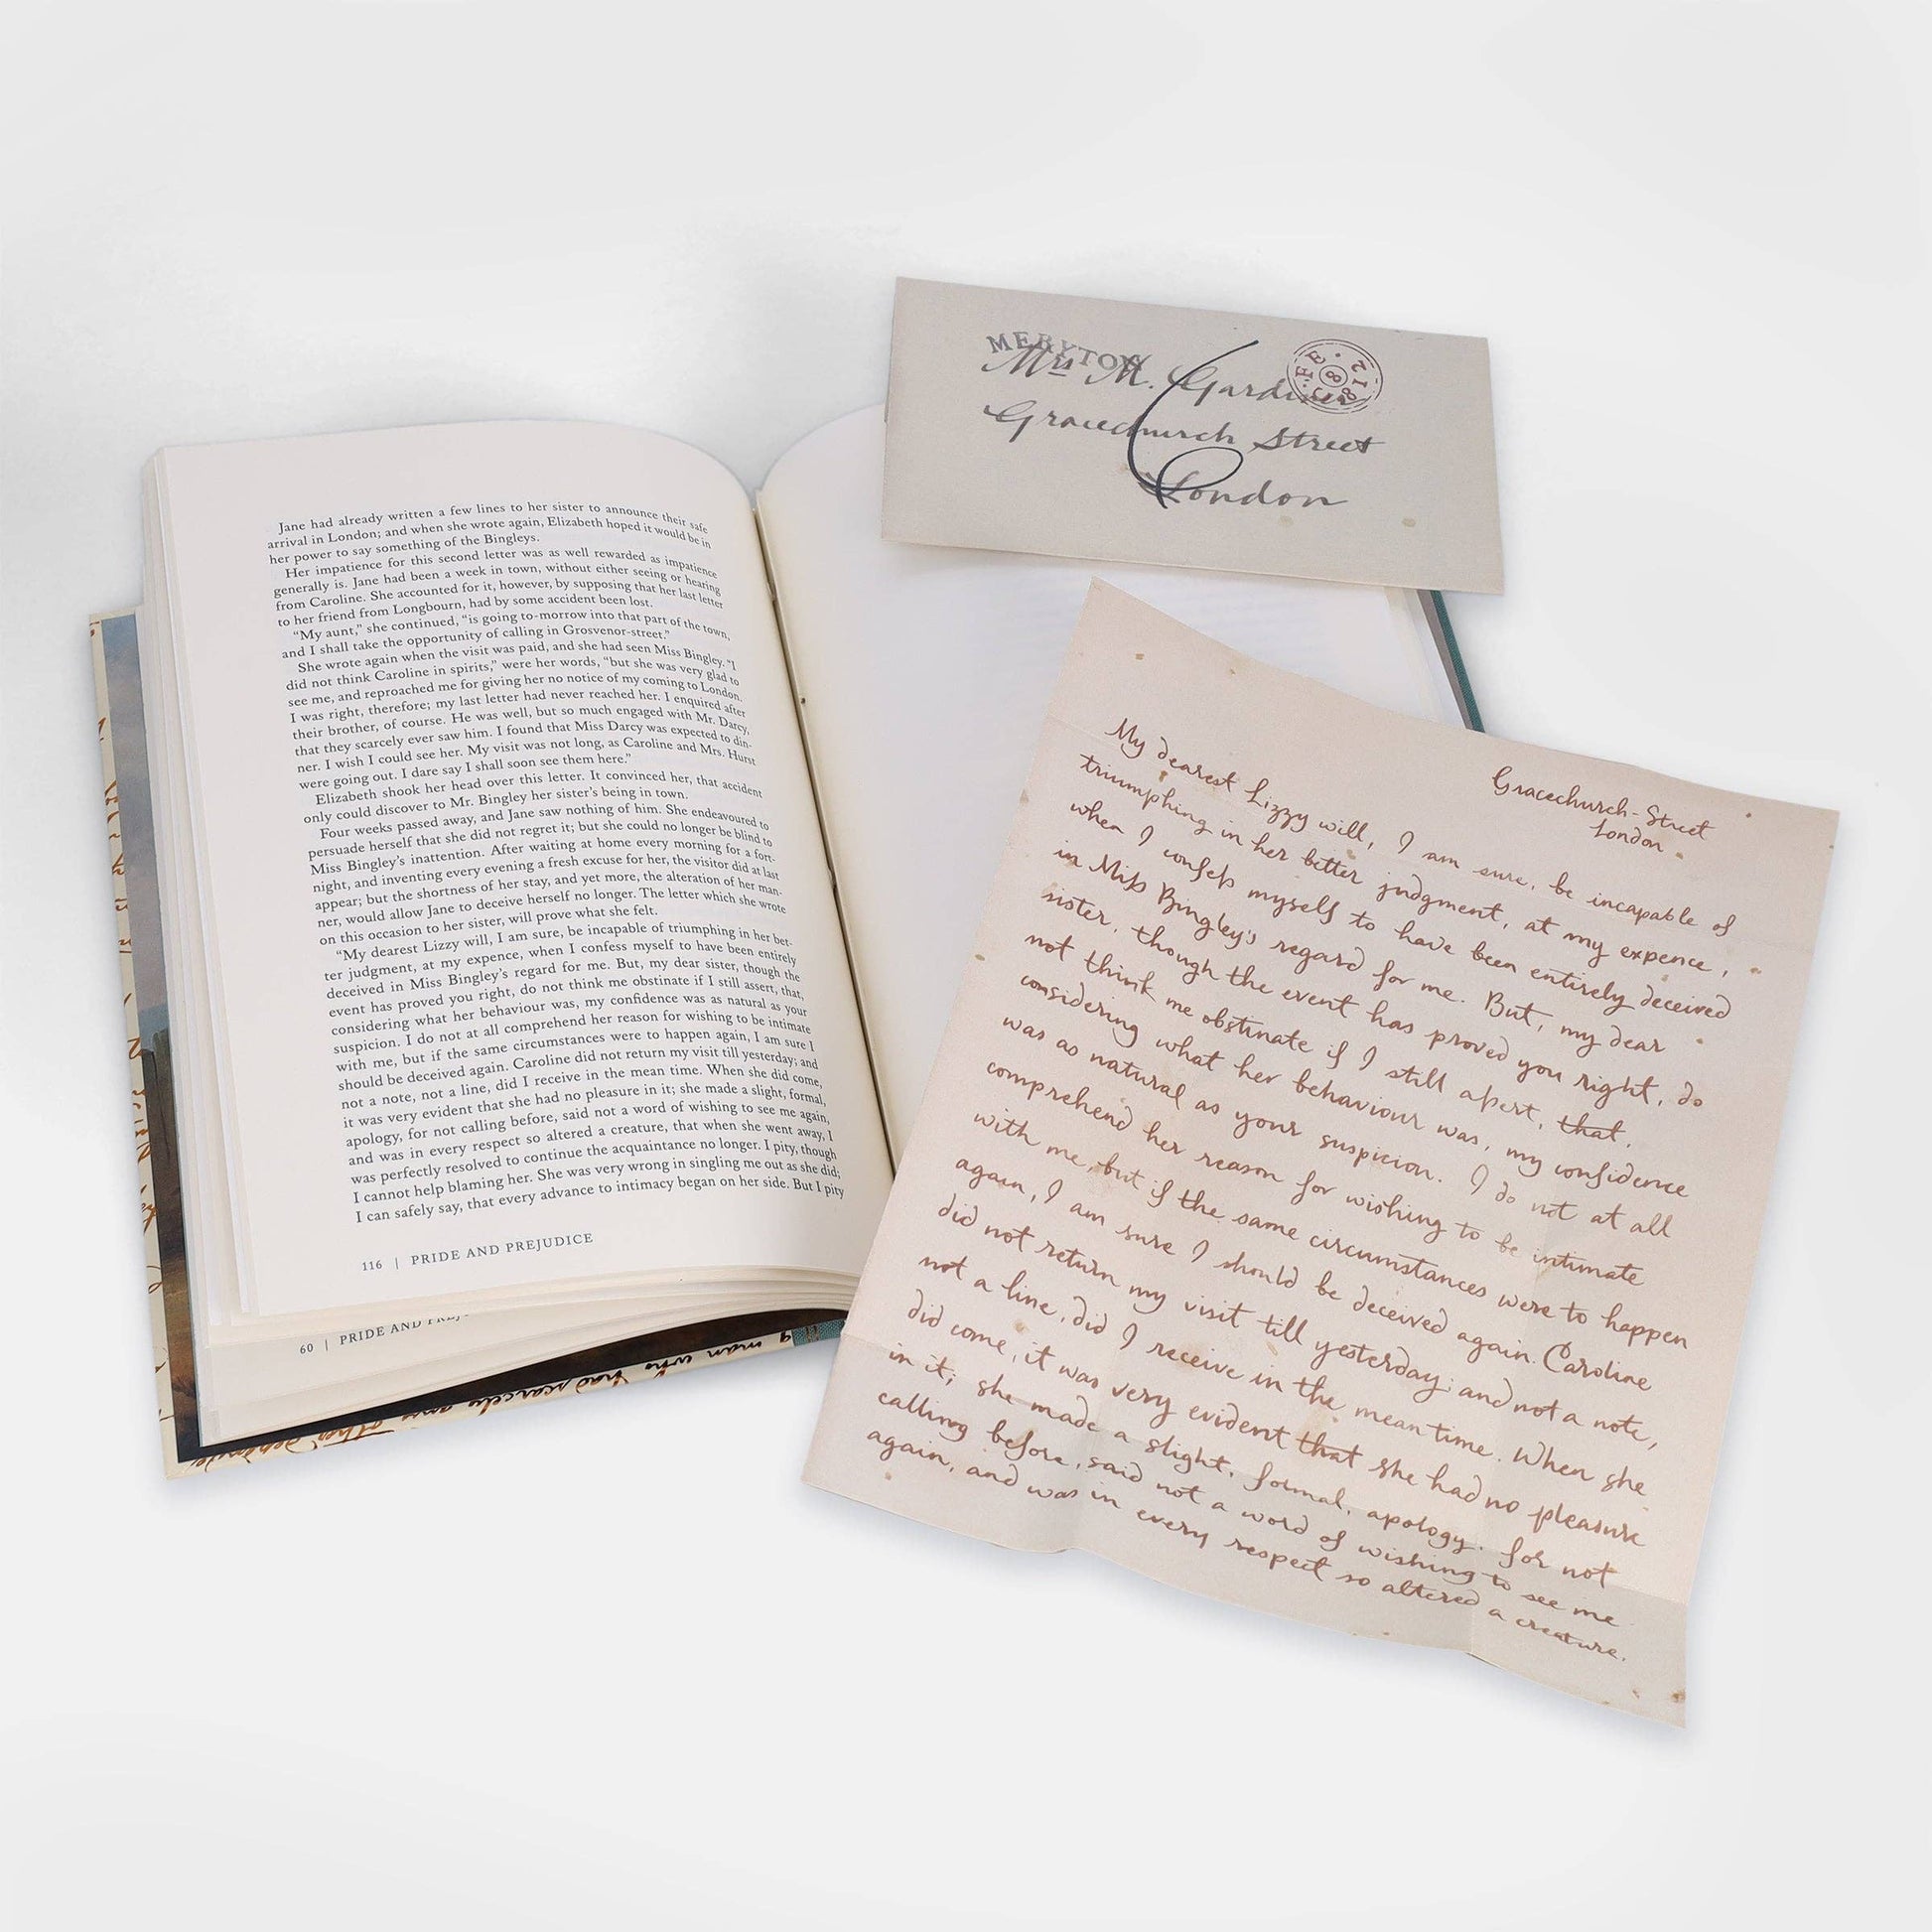 Jane had already written a few lines to her sister to announce their safe
arrival in London; and when she wrote again, Elizabeth hoped it would be in
her power to say something of the Bingleys.
Her impatience for this second letter was as well rewarded as impatience
generally is. Jane had been a week in town, without either seeing or hearing
from Caroline. She accounted for it, however, by supposing that her last letter
to her friend from Longbourn, had by some accident been lost.
“My aunt,” she continued, “is going to-morrow into that part of the town,
and I shall take the opportunity of calling in Grosvenor-street.”
She wrote again when the visit was paid, and she had seen Miss Bingley. “I
did not think Caroline in spirits,” were her words, “but she was very glad to
see me, and reproached me for giving her no notice of my coming to London.
I was right, therefore; my last letter had never reached her. I enquired after
their brother, of course. He was well, but so much engaged with Mr. Darcy,
that they scarcely ever saw him. I found that Miss Darcy was expected to din-
ner. I wish I could see her. My visit was not long, as Caroline and Mrs. Hurst
were going out. I dare say I shall soon see them here.”
Elizabeth shook her head over this letter. It convinced her, that accident
only could discover to Mr. Bingley her sister’s being in town.
Four weeks passed away, and Jane saw nothing of him. She endeavoured to
persuade herself that she did not regret it; but she could no longer be blind to
Miss Bingley’s inattention. After waiting at home every morning for a fort-
night, and inventing every evening a fresh excuse for her, the visitor did at last
appear; but the shortness of her stay, and yet more, the alteration of her man-
ner, would allow Jane to deceive herself no longer. The letter which she wrote
on this occasion to her sister, will prove what she felt.
“My dearest Lizzy will, I am sure, be incapable of triumphing in her bet-
ter judgment, at my expence, when I confess myself to have been entirely
deceived in Miss Bingley’s regard for me. But, my dear sister, though the
event has proved you right, do not think me obstinate if I still assert, that,
considering what her behaviour was, my confidence was as natural as your
suspicion. I do not at all comprehend her reason for wishing to be intimate
with me, but if the same circumstances were to happen again, I am sure I
should be deceived again. Caroline did not return my visit till yesterday; and
not a note, not a line, did I receive in the mean time. When she did come,
it was very evident that she had no pleasure in it; she made a slight, formal,
apology, for not calling before, said not a word of wishing to see me again,
and was in every respect so altered a creature, that when she went away, I
was perfectly resolved to continue the acquaintance no longer. I pity, though
I cannot help blaming her. She was very wrong in singling me out as she did;
I can safely say, that every advance to intimacy began on her side. But I pity
116 | PRIDE AND PREJUDICE
60 | PRIDE AND
man who
had scarcely any other
MERYTON
Mrs M. Gardiner
Gracechurch Street
London
FE 8 1812
Gracechurch-Street
London
My dearest Lizzy will, I am sure, be incapable of
triumphing in her better judgment, at my expence,
when I confess myself to have been entirely deceived
in Miss Bingley's regard for me. But, my dear
sister, though the event has proved you right, do
not think me obstinate if I still assert, that,
considering what her behaviour was, my confidence
was as natural as your suspicion. I do not at all
comprehend her reason for wishing to be intimate
with me, but if the same circumstances were to happen
again, I am sure I should be deceived again. Caroline
did not return my visit till yesterday; and not a note,
not a line, did I receive in the mean time. When she
did come, it was very evident that she had no pleasure
in it; she made a slight, formal, apology, for not
calling before, said not a word of wishing to see me
again, and was in every respect so altered a creature.